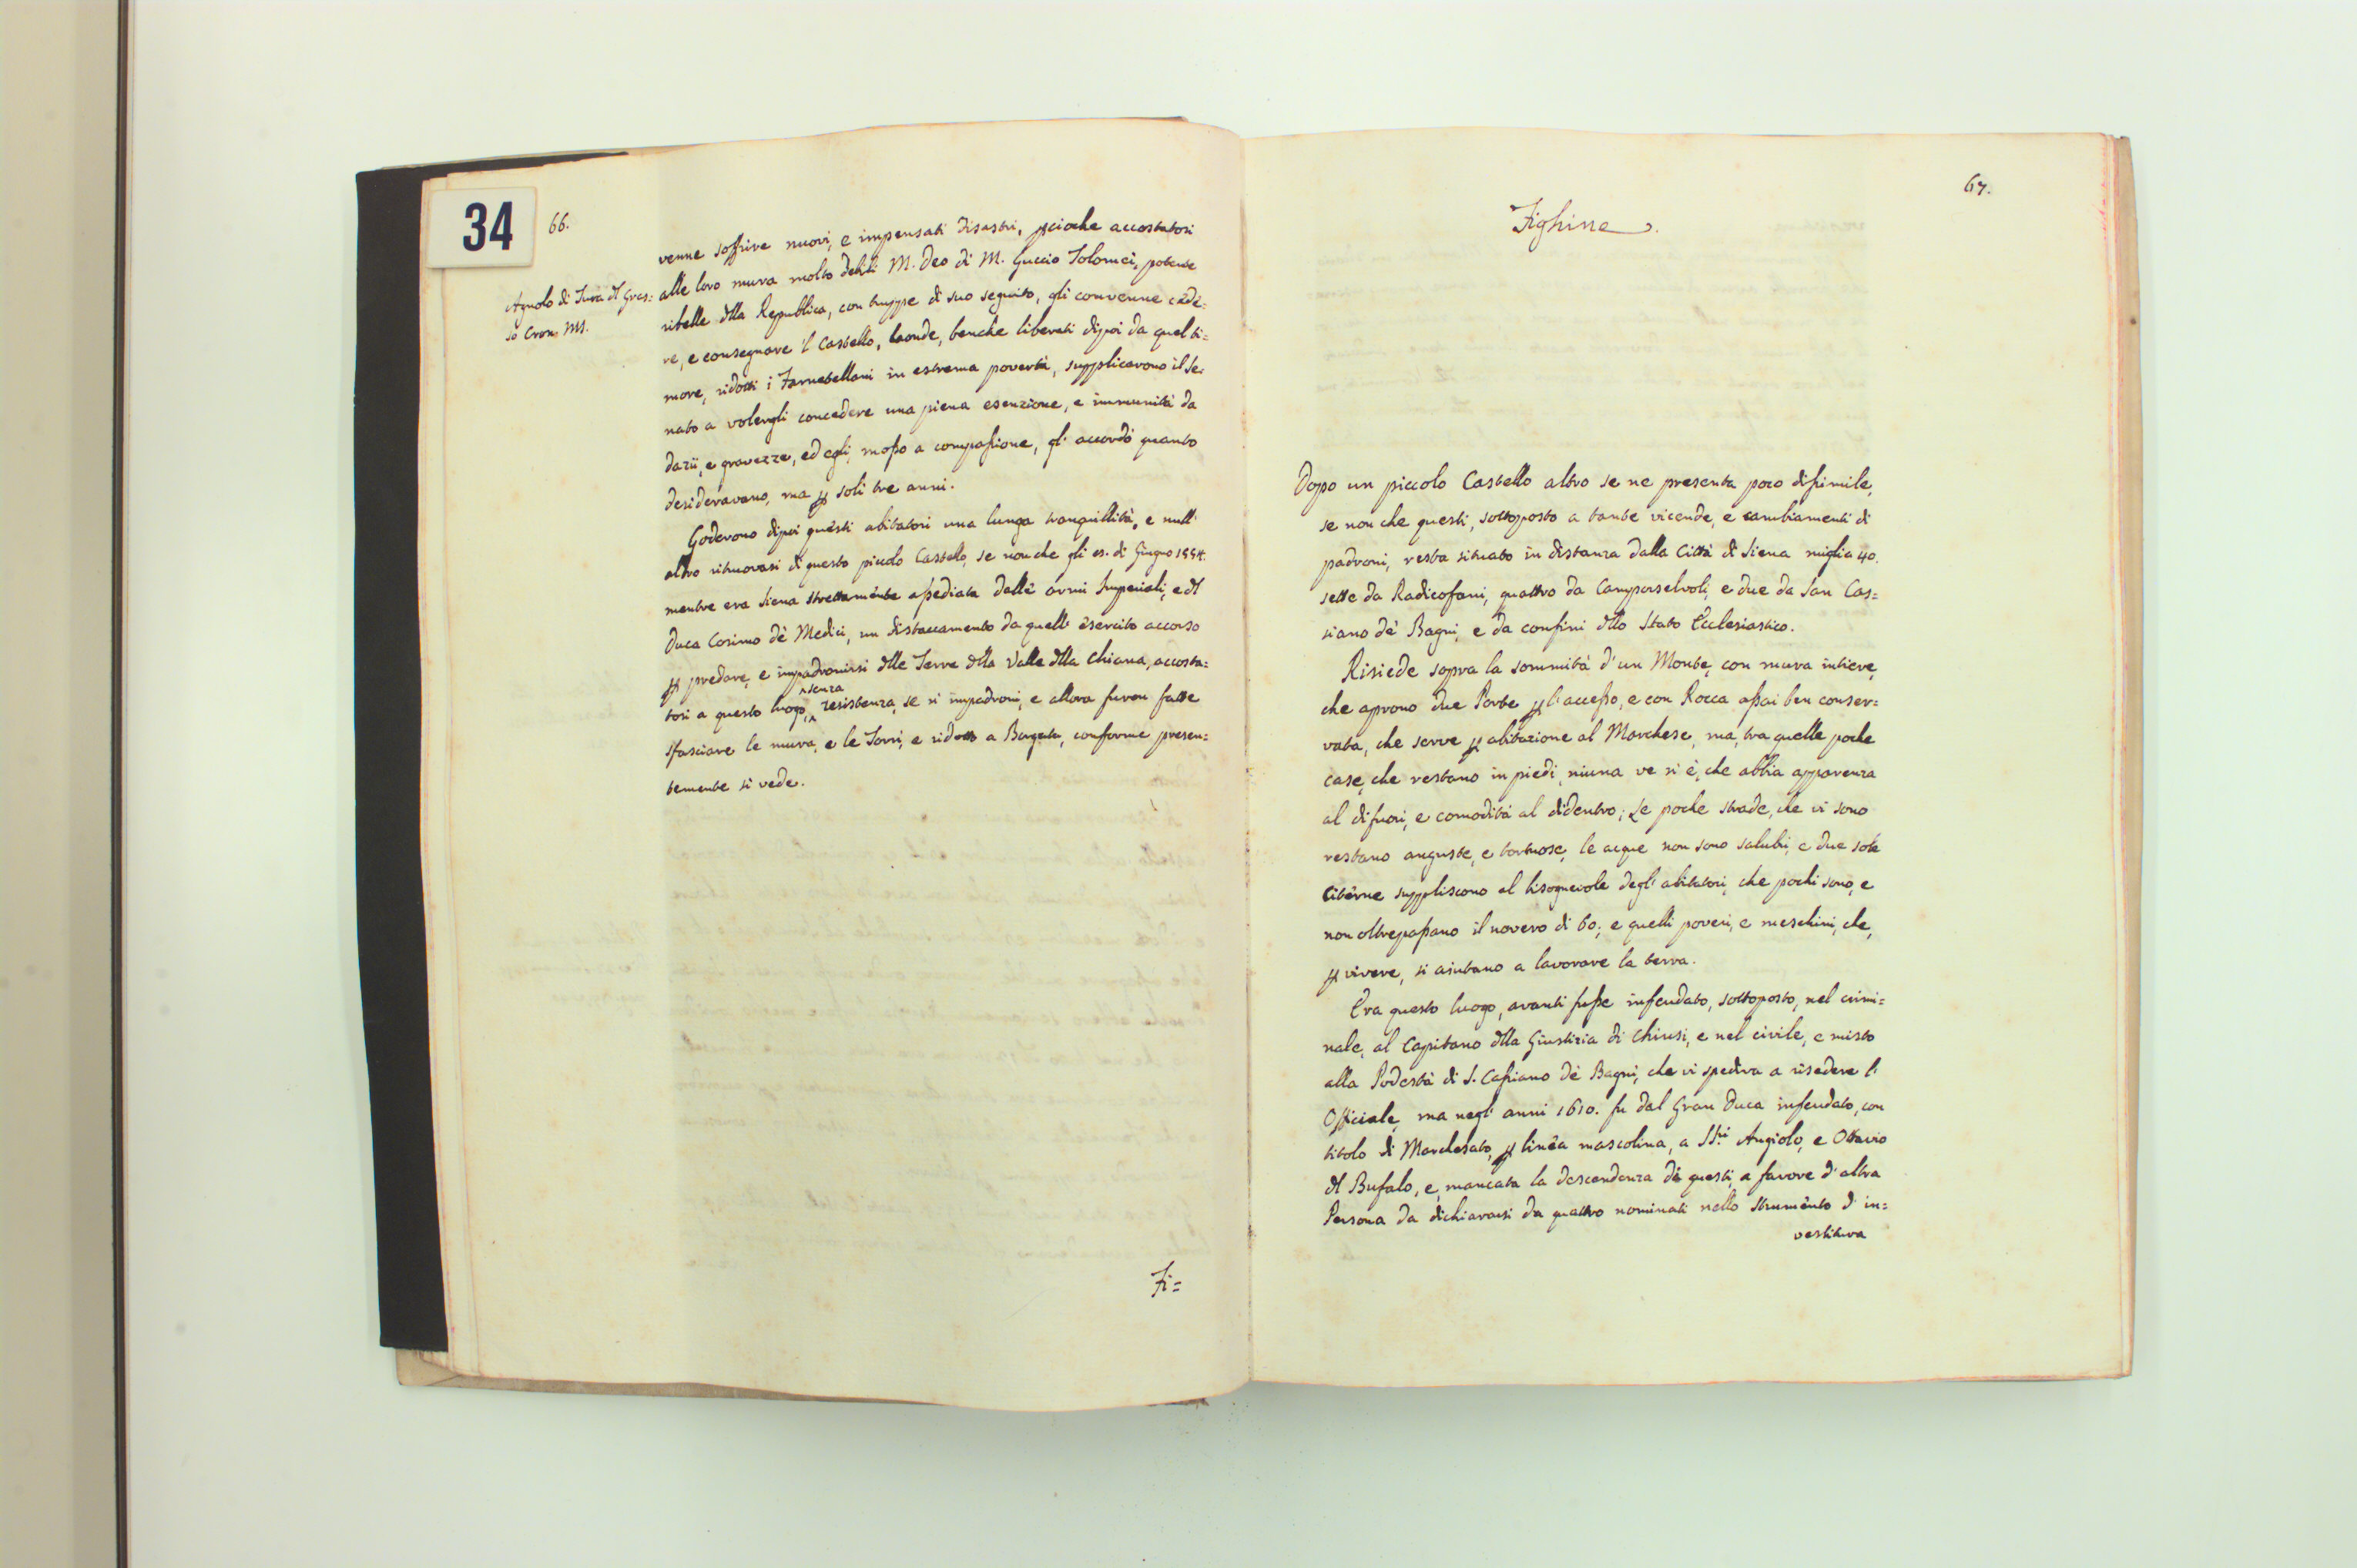 34
66.
Agnolo di Tura dl Gras=
so Cron. MS.
venne soffrire nuovi, e impensati disastri, pcioche accostatosi
alle loro mura molto debili M. Deo di M. Guccio Tolomei, potente
ribelle dlla Republica, con truppe di suo seguito, gli convenne cede=
re, e consegnare il Castello, laonde, benche liberati dipoi da quel ti=
more, ridotti i Farnetellani in estrema povertà, supplicarono il Se=
nato a volergli concedere una piena esenzione, e immunità da
dazii, e gravezze, ed egli, moßo a compaßione, gl' accordò quanto
desideravano, ma p soli tre anni.
Goderono dipoi questi abitatori una lunga tranquillità, e null'
altro ritrovasi di questo piccolo Castello, se non che gli es. di Giugno 1554.
mentre era Siena strettamente aßediata dalle armi Imperiali, e dl
Duca Cosimo dè Medici, un distaccamento da quell' esercito accorso
p predare, e impadronirsi dlle Terre dlla Valle dlla Chiana, accosta=
tosi a questo luogo, senza resistenza, se ne impadronì, e allora furon fatte
sfasciare le mura, e le Torri, e ridotto a Borgata, conforme presen=
temente si vede.
Fi=
67.
Fighine.
Dopo un piccolo Castello altro se ne presenta poco dißimile,
se non che questi, sottoposto a tante vicende, e cambiamenti di
padroni, resta situato in distanza dalla Città di Siena miglia 40.
sette da Radicofani, quattro da Camporselvoli, e due da San Cas=
siano dè Bagni, e da confini dllo Stato Ecclesiastico.
Risiede sopra la sommità d'un Monte, con mura intiere,
che aprono due Porte p l'acceßo, e con Rocca aßai ben conser=
vata, che serve p abitazione al Marchese, ma, tra quelle poche
case, che restano in piedi, niuna ve ne è, che abbia apparenza
al difuori, e comodità al didentro; Le poche strade, che vi sono
restano anguste, e tortuose, le acque non sono salubri, e due sole
Citerne suppliscono al bisognevole degl' abitatori, che pochi sono, e
non oltrepaßano il novero di 60; e quelli poveri, e meschini, che,
p vivere, si aiutano a lavorare la terra.
Era questo luogo, avanti fuße infeudato, sottoposto, nel crimi=
nale, al Capitano dlla Giustizia di Chiusi, e nel civile, e misto
alla Podestà di S. Caßiano dè Bagni, che vi spediva a risedere l'
Officiale, ma negl' anni 1610. fu dal Gran Duca infeudato, con
titolo di Marchesato, p linea mascolina, a SSri Angiolo, e Ottavio
dl Bufalo, e, mancata la descendenza di questi, a favore d'altra
Persona da dichiararsi da quattro nominati nello Strumento d' in=
vestitura